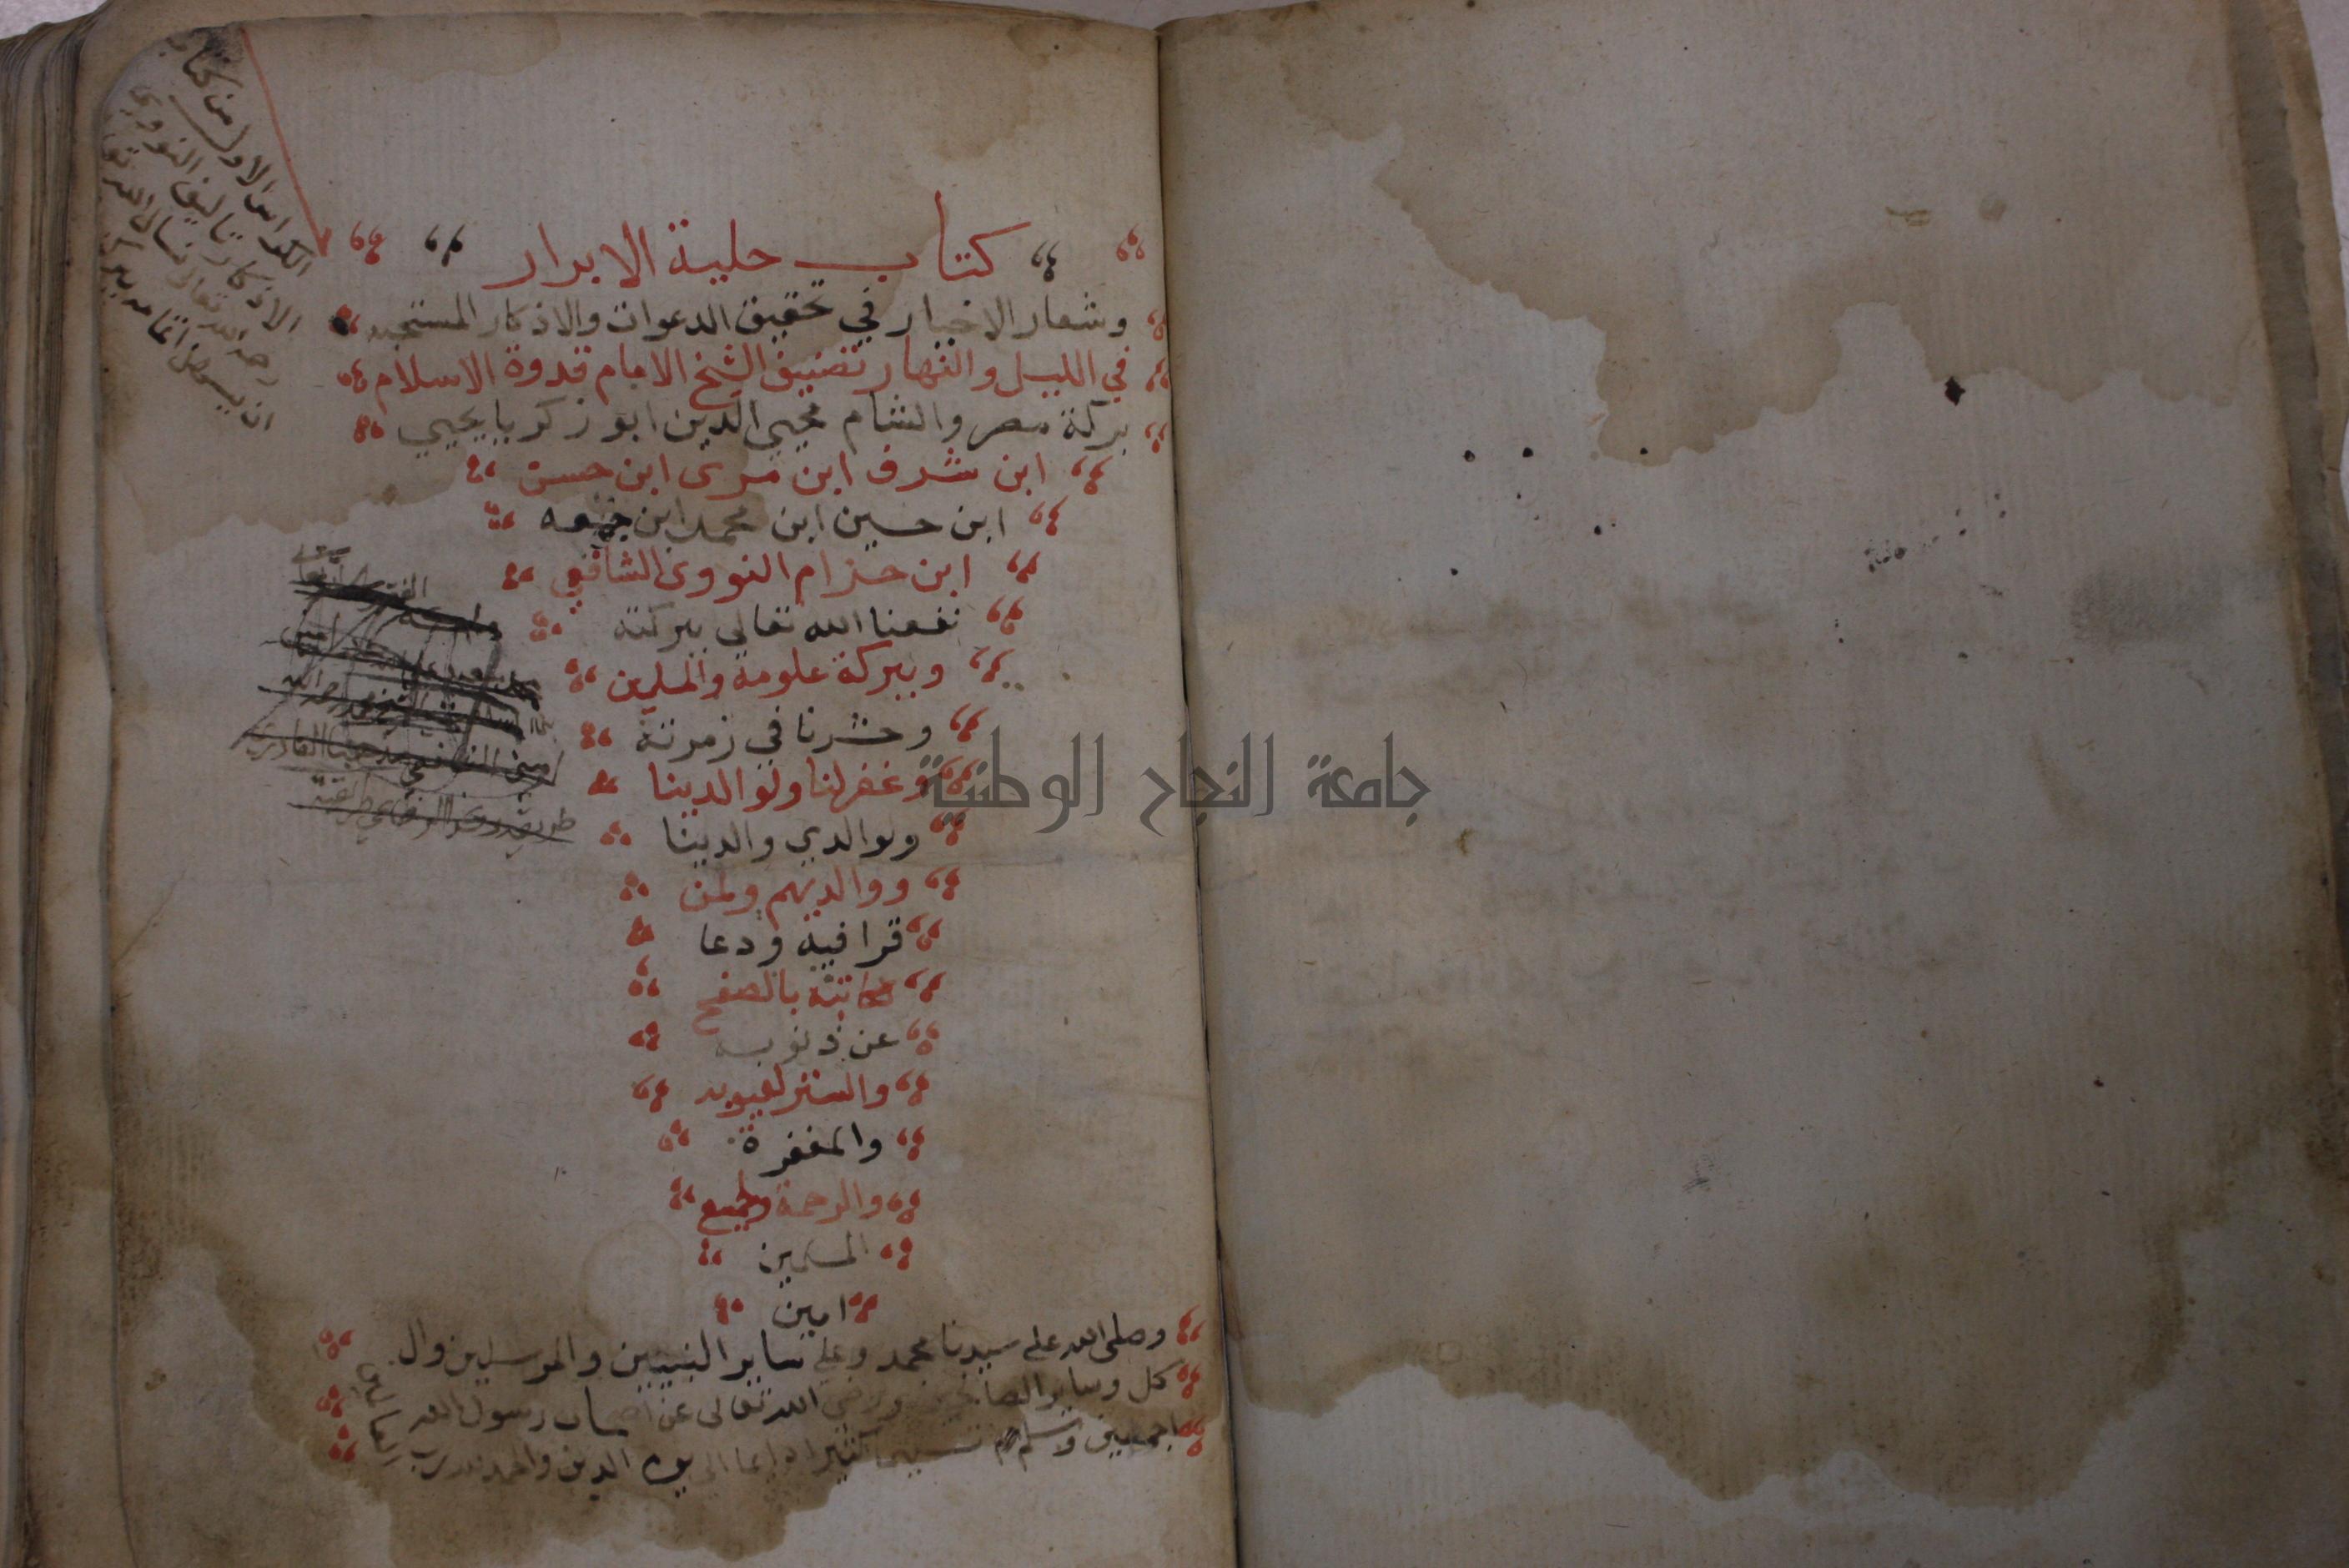 الكراس الاول من كتاب
الاذكار تاليف النووي
رحمه الله تعالى نسال الله
ان يسهل اتمامه
كتاب حلية الابرار
وشعار الاخيار في تحقيق الدعوات والاذكار المستحبه
في الليل والنهار تصنيف الشيخ الامام قدوة الاسلام
بركة مصر والشام محيي الدين ابو زكريا يحيي
ابن شرف ابن مرى ابن حسن
ابن حسين ابن محمد ابن جمعه
ابن حزام النووى الشافعي
نفعنا الله تعالى ببركته
وببركة علومه والمسلمين
وحشرنا في زمرته
وغفر لنا ولوالدينا
ولوالدي والدينا
ووالديهم ولمن
قرا فيه ودعا
لكاتبه بالصفح
عن ذنوبه
والستر لعيوبه
والمغفرة
والرحمة ولجميع
المسلمين
امين
وصلى الله على سيدنا محمد وعلى ساير النبيين والمرسلين وال
كل وساير الصالحين ورضي الله تعالى عن اصحاب رسول الله
اجمعين وسلم تسليما كثيرا دايما الى يوم الدين والحمد لله رب
العالمين
جامعة النجاح الوطنية